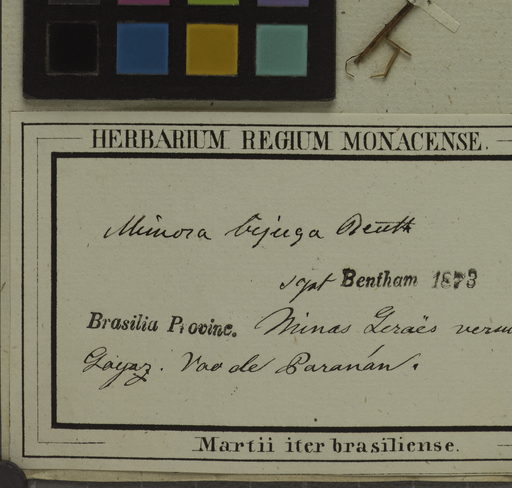 HERBARIUM REGIUM MONACENSE.
Mimosa bijuga Benth
sgst Bentham 1873
Brasilia Provinc. Minas Geraës versu
Goyaz. Vao de Paranán.
Martii iter brasiliense.